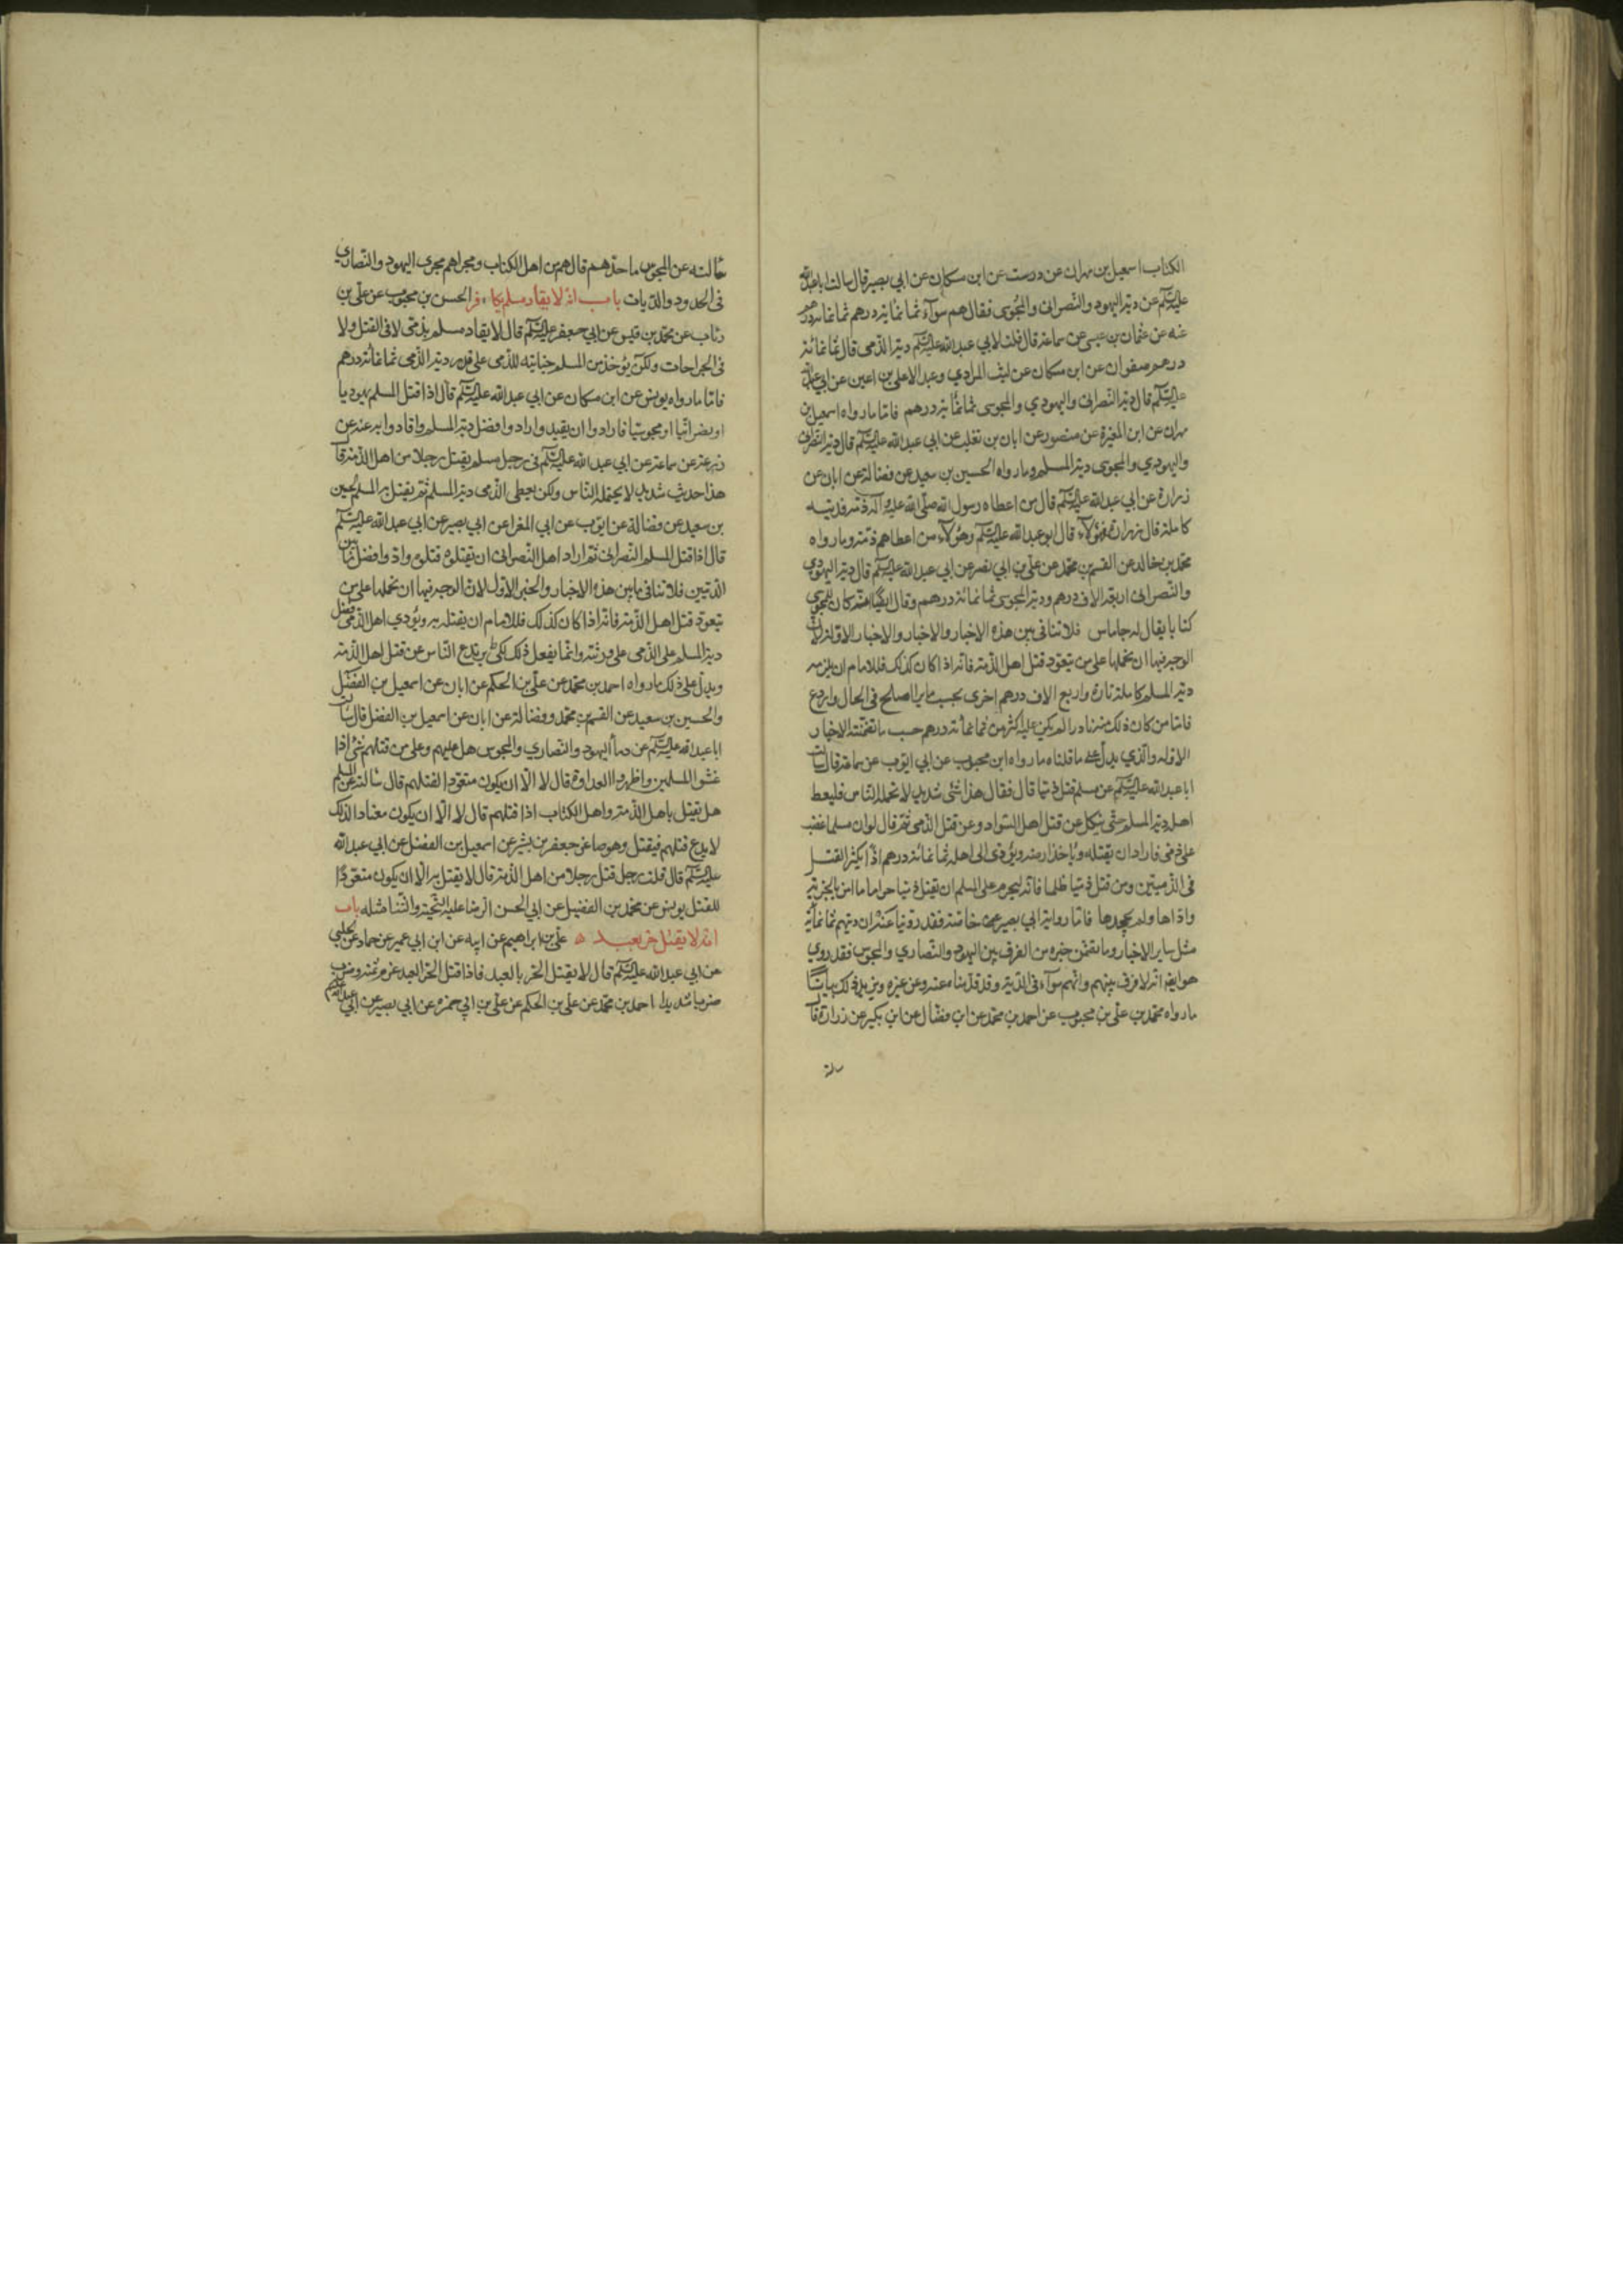 الكتاب اسمعيل بن مهران عن درست عن ابن مسكان عن ابي بصير قال سالت ابا عبدالله
عليه السلم عن دية اليهود والنصراني والمجوسي فقال هم سوآء ثمانماية درهم ثمانمائة درهم
عنه عن عثمان بن عيسى عن سماعة قال قلت لابي عبد الله عليه السلم دية الذمى قال ثمانمائة
درهم صفوان عن ابن مسكان عن ليث المرادي وعبد الاعلى بن اعين عن ابي عبدالله
عليه السلم قال دية النصرانى واليهودي والمجوسى ثمانماية درهم فاما ما رواه اسمعيل بن
مهران عن ابن المغيرة عن منصور عن ابان بن تغلب عن ابي عبد الله عليه السلم قال دية النصرانى
واليهودي والمجوسى دية المسلم وما رواه الحسين بن سعيد عن فضالة عن ابان عن
زرارة عن ابي عبد الله عليه السلم قال من اعطاه رسول الله صلى الله عليه وآله ذمة فديته
كاملة قال زرارة فهؤلآء قال ابو عبد الله عليه السلم وهؤلآء من اعطاهم ذمة وما رواه
محمد بن خالد عن القسم بن محمد عن علي بن ابي بصير عن ابي عبد الله عليه السلم قال دية اليهودي
والنصرانى اربعة الاف درهم ودية المجوسى ثمانمائة درهم وقال ايضا انه كان للمجوسى
كتابا يقال له جاماس فلا تنافى بين هذه الاخبار والاخبار والاخبار الاولة لان
الوجه فيها ان نحملها على من يتعود قتل اهل الذمة فانه اذا كان كذلك فللامام ان يلزمه
دية المسلم كاملة تارة واربع الاف درهم اخرى بحسب ما يراه اصلح فى الحال واردع
فاما من كان ذلك منه نادرا لم يكن عليه اكثر من ثمانمائة درهم حسب ما تضمنته الاخبار
الاولة والذي يدل على ما قلناه ما رواه ابن محبوب عن ابي ايوب عن سماعة قال سالت
ابا عبد الله عليه السلم عن مسلم قتل ذميا قال فقال هذا شئ شديد لا تحمله الناس فليعط
اهله دية المسلم حتى ينكل عن قتل اهل السواد وعن قتل الذمى ثم قال لو ان مسلما غضب
على ذمى فاراد ان يقتله وياخذ ارضه ويؤدى الى اهله ثمانمائة درهم اذا يكثر القتل
فى الذميين ومن قتل ذميا ظلما فانه ليحرم على المسلم ان يقتل ذميا حراما ما امن بالجزية
واداها ولم يجحدها فاما رواية ابي بصير خاصة فقد روينا عنه ان ديتهم ثمانمائة
مثل ساير الاخبار وما تضمن خبره من الفرق بين اليهود والنصاري والمجوس فقد روي
هو ايضا انه لا فرق بينهم وانهم سوآء فى الدية وقد قدمناه عنه وعن غيره ويزيد ذلك بيانا
ما رواه محمد بن علي بن محبوب عن احمد بن محمد عن ابن فضال عن ابن بكير عن زرارة قال
سالته عن المجوس ما حدهم قال هم من اهل الكتاب ومجراهم مجرى اليهود والنصاري
فى الحدود والديات باب انه لا يقاد مسلم بكافر الحسن بن محبوب عن علي بن
رئاب عن محمد بن قيس عن ابي جعفر عليه السلم قال لا يقاد مسلم بذمى لا فى القتل ولا
فى الجراحات ولكن يؤخذ من المسلم جنايته للذمى على قدر دية الذمى ثمانمائة درهم
فاما ما رواه يونس عن ابن مسكان عن ابي عبد الله عليه السلم قال اذا قتل المسلم يهوديا
او نصرانيا او مجوسيا فارادوا ان يقيدوا رادوا فضل دية المسلم واقادوا به عنه عن
زرعة عن سماعة عن ابي عبد الله عليه السلم فى رجل مسلم يقتل رجلا من اهل الذمة قال
هذا حديث شديد لا يحتمله الناس ولكن يعطى الذمى دية المسلم ثم يقتل به المسلم الحسين
بن سعيد عن فضالة عن ايوب عن ابي المغرا عن ابي بصير عن ابي عبد الله عليه السلم
قال اذا قتل المسلم النصرانى ثم اراد اهل النصرانى ان يقتلوه قتلوه وادوا فضل ما بين
الديتين فلا تنافى ما بين هذه الاخبار والخبر الاول لان الوجه فيها ان نحملها على من
يتعود قتل اهل الذمة فانه اذا كان كذلك فللامام ان يقتله به ويؤدي اهل الذمى فضل
دية المسلم على الذمى على ورثته وانما يفعل ذلك لكى يرتدع الناس عن قتل اهل الذمة
ويدل على ذلك ما رواه احمد بن محمد عن علي بن الحكم عن ابان عن اسمعيل بن الفضل
والحسين بن سعيد عن القسم بن محمد وفضالة عن ابان عن اسمعيل بن الفضل قال سالت
ابا عبد الله عليه السلم عن دمآ اليهود والنصاري والمجوس هل عليهم وعلى من قتلهم شئ اذا
غشوا المسلمين واظهروا العداوة قال لا الا ان يكون متعودا لقتلهم قال سالته عن المسلم
هل يقتل باهل الذمة واهل الكتاب اذا قتلهم قال لا الا ان يكون معتادا لذلك
لا يدع قتلهم فيقتل وهو صاغر جعفر بن بشير عن اسمعيل بن الفضل عن ابي عبد الله
عليه السلم قال قلت رجل قتل رجلا من اهل الذمة قال لا يقتل به الا ان يكون متعودا
للقتل يونس عن محمد بن الفضيل عن ابي الحسن الرضا عليه التحية والثنا مثله باب
انه لا يقتل حر بعبد علي بن ابراهيم عن ابيه عن ابن ابي عمير عن حماد عن الحلبي
عن ابي عبد الله عليه السلم قال لا يقتل الحر بالعبد فاذا قتل الحر العبد غرم ثمنه وضرب
ضربا شديدا احمد بن محمد عن علي بن الحكم عن علي بن ابي حمزه عن ابي بصير عن ابي عبد الله عليه السلم